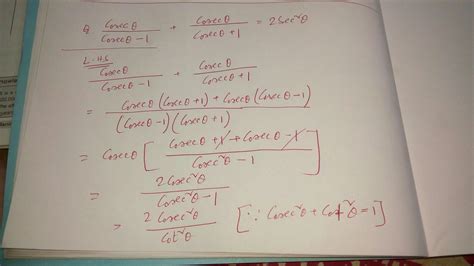 Q. Cosecθ / Cosecθ - 1 + Cosecθ / Cosecθ + 1 = 2Sec²θ
L.H.S
Cosecθ / Cosecθ - 1 + Cosecθ / Cosecθ + 1
= Cosecθ (Cosecθ + 1) + Cosecθ (Cosecθ - 1) / (Cosecθ - 1) (Cosecθ + 1)
= Cosecθ [ Cosecθ + 1 + Cosecθ - 1 / Cosec²θ - 1 ]
= 2Cosec²θ / Cosec²θ - 1
= 2Cosec²θ / Cot²θ [∵ Cosec²θ + Cot²θ = 1]